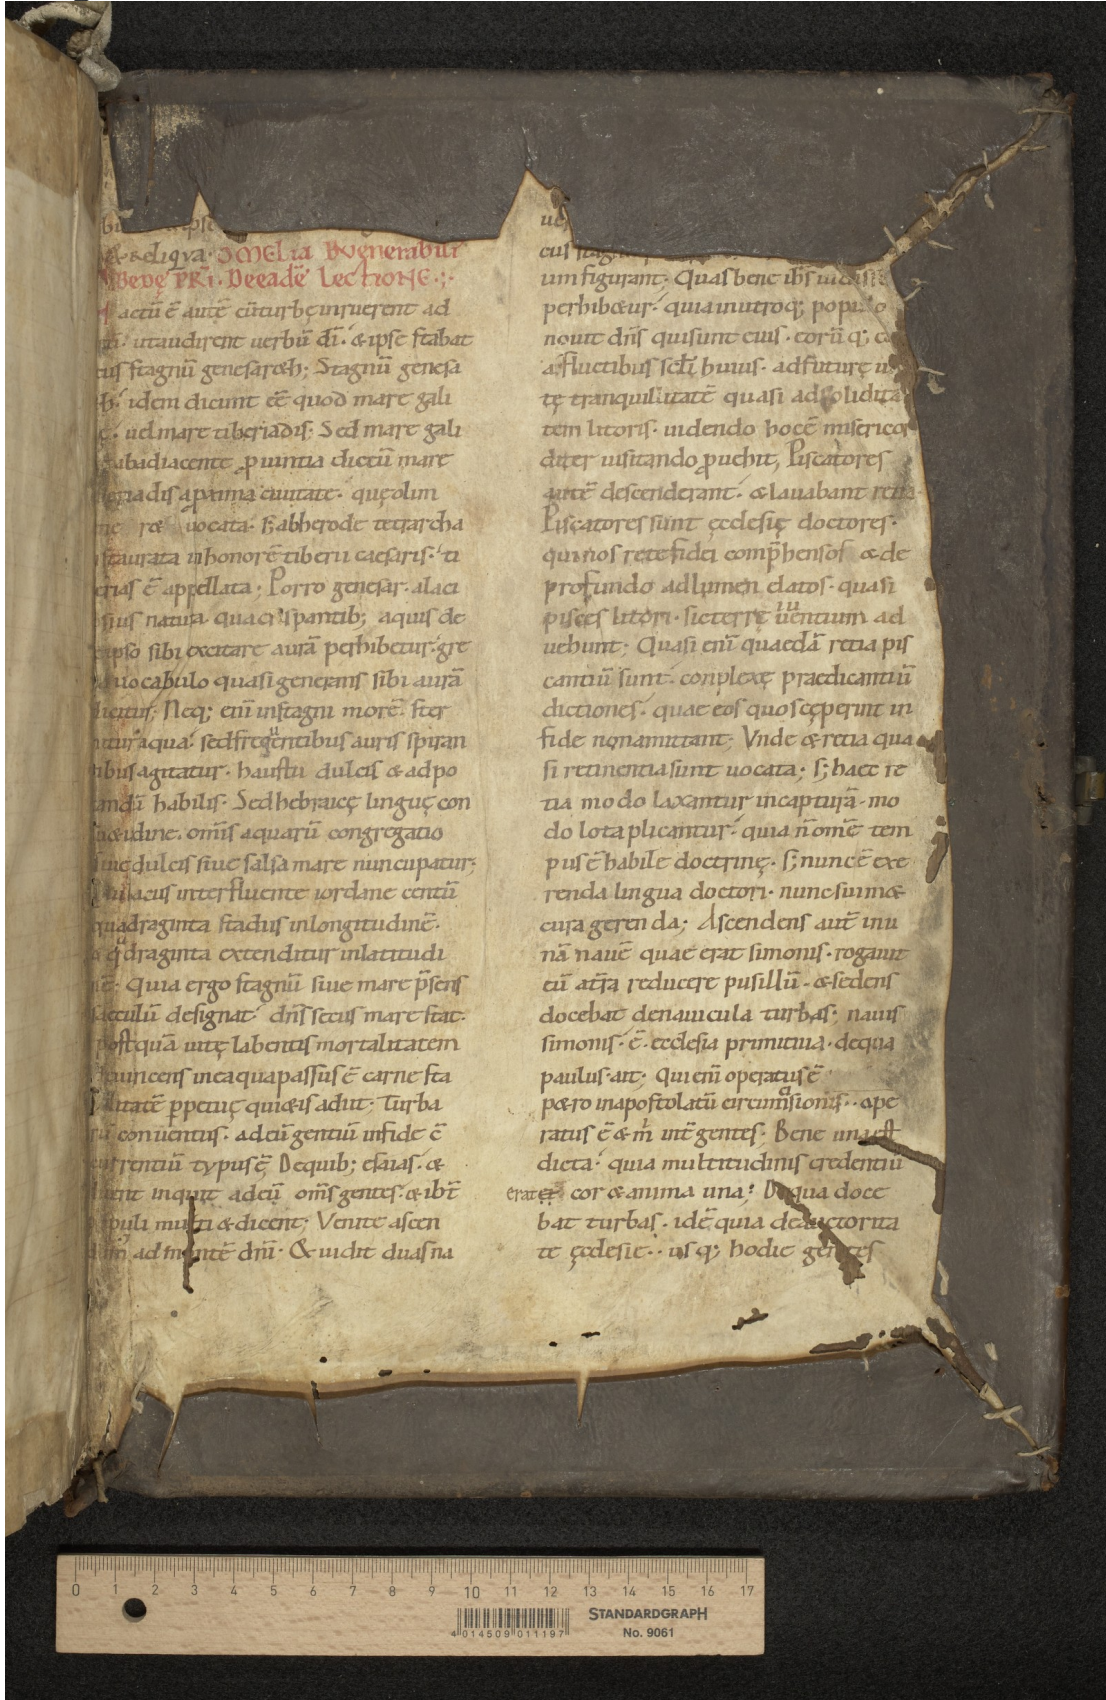 & reliqva. OMELia Bvenerabili
Bedę PRI. De eadē Lectione.
actū ē autē cū turbę inruerent ad
utaudirent uerbū dī. & ipse stabat
stagnū genesar&h; Stagnū genesa
idem dicunt eē quod mare gali
uel mare tiberiadis. Sed mare gali
abadiacente puintia dictū mare
aproxima ciuitate. quęolim
uocata. s; abherode tetrarcha
inhonorē tiberii caesaris. ti
ē appellata; Porro genesar. alaci
natura. qua crispantib; aquis de
ipso sibi excitare aurā perhibetur. gre
uocabulo quasi generans sibi aurā
dicitur; Neq; enī instagni morē ster
aqua. sed freqentibus auris spiran
tibus agitatur. haustu dulcis & adpo
tandū habilis. Sed hebraicę linguę con
su&udine. omīs aquarū congregatio
siue dulcis siue salsa mare nuncupatur;
lacus interfluente iordane centū
quadraginta stadiis inlongitudinē.
qdraginta extenditur inlatitudi
nē. Quia ergo stagnū siue mare p̄sens
saeculū designat. dn̄s secus mare stat.
postquā uitę labentis mortalitatem
deuincens ineaquapassus ē carne sta
bilitatē p̱petuę qui&is adiit. Turba
rū conuentus. adeū gentiū infide ē
currentiū typus ē; Dequib; esaias. &
fluent inquit adeū oms gentes. & ib̄t
populi multi & dicent; Venite ascen
dam̄ ad montē dn̄i. & uidit duas na
um figurant. Quas bene ihs uidisse
perhib&ur. quia inutroq; populo
nouit dn̄s qui sunt eius. eorū q;
afluctibus scl̄i huius. adfuturę
tę tranquillitatē quasi ad solidita
tem litoris. uidendo hocē misericor
diter uisitando puehit; Piscatores
autē descenderant. & lauabant retia.
Piscatores sunt ęcclesię doctores.
qui nos rete fidei comp̄hensos & de
profundo adlumen elatos. quasi
pisces litori. sicterrę uiuentium ad
uehunt; Quasi enī quaedā retia pis
cantiū sunt. conplexę praedicantiū
dictiones. quae eos quos ceperint in
fide nonamittant; Vnde & retia qua
si retinentia sunt uocata; s; haec re
tia modo laxantur incapturā. mo
do lota plicantur. quia n̄ omē tem
pus ē habile doctrinę. s; nunc ē exe
renda lingua doctori. nunc suim&
cura gerenda; Ascendens autē inu
nā nauē quae erat simonis. rogauit
eū at̄ra reducere pusillū. & sedens
docebat denauicula turbas; nauis
simonis. ē. ecclesia primitiua. dequa
paulus. ait; Qui enī operatus ē
p&ro inapostolatū circumcisionis. ope
ratus ē & m̄ int̄ gentes. Bene una est
dicta. quia multitudinis credentiū
erat cor & anima una; Dequa doce
bat turbas. idē quia deauctorita
te ęcclesie. usq; hodie gentes
0 1 2 3 4 5 6 7 8 9 10 11 12 13 14 15 16 17
STANDARDGRAPH
No. 9061
4 014509 011197